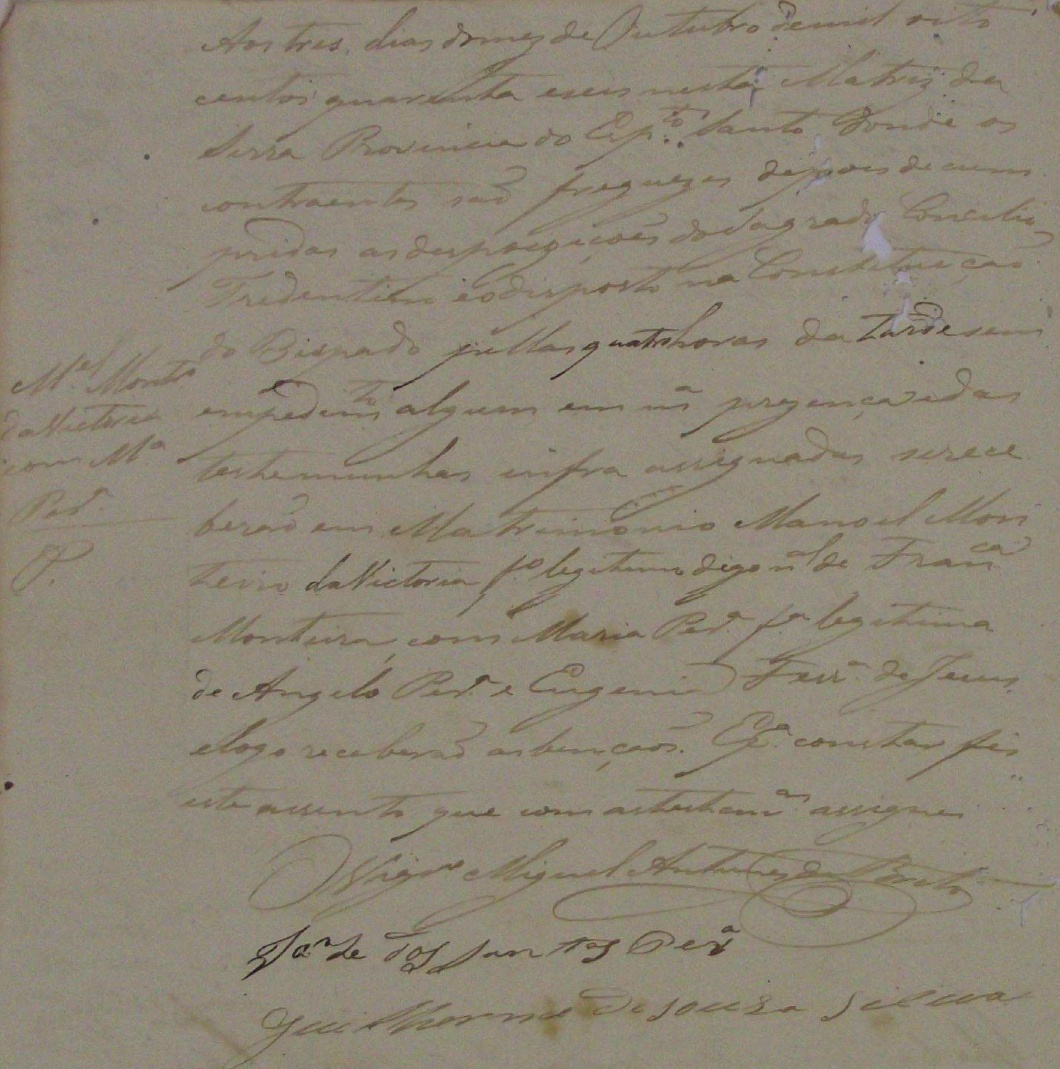 Aos tres, dias do mez de Outubro de mil oito
centos quarenta e seis nesta Matriz da
Serra Provincia do Esp.to Santo donde os
contraentes saõ freguezes depois de cum
pridas as desposiçoẽs do Sagrado Concilio
Tredentino e o disposto na Constetuiçaõ
do Bispado pellas quatro horas da tarde sem
empedim.to algum em m.a prezença e das
testemunhas infra assignadas se rece
beraõ em Matrimonio Manoel Mon
teiro da Victoria f.o legitimo digo n.al de Fran.ca
Monteira, com Maria Per.a f.a legitima
de Angelo Per.a e Eugenia Ferr.a de Jesus
e logo receberaõ as bençaõs. E p.a constar fis
este assento que com as testem.as assignei
Vigr.o Miguel Antunes de Brito
dos Santos Per.a
Guilherme de souza Silva
M.el Montr.o
da Victoria
com M.a
Per.a
P.